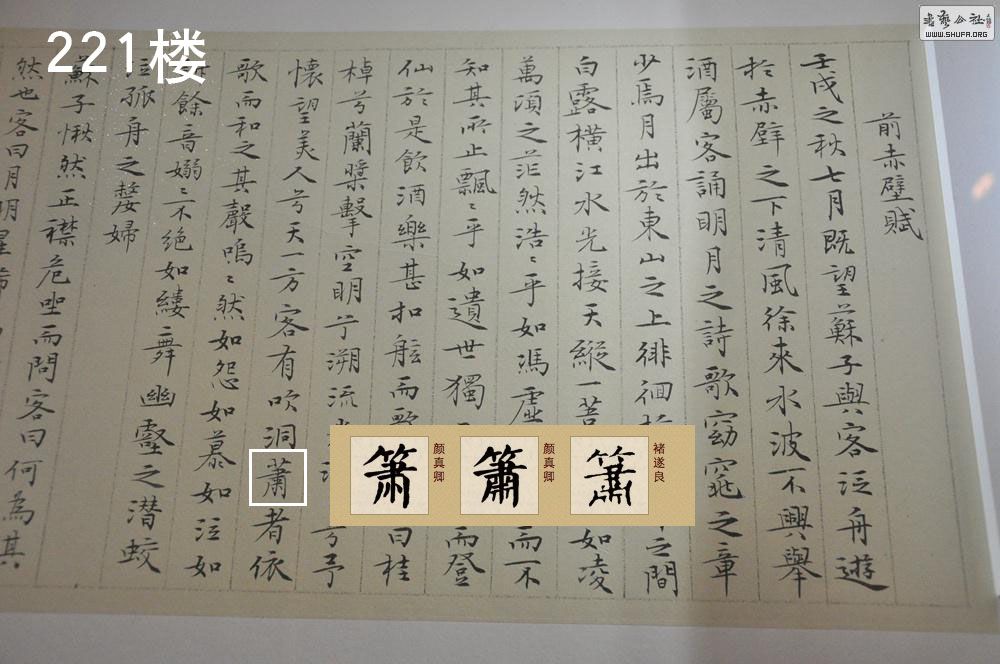 221楼
書藝公社
WWW.SHUFA.ORG
前赤壁賦
壬戌之秋七月既望蘇子與客泛舟遊
於赤壁之下清風徐來水波不興舉
酒屬客誦明月之詩歌窈窕之章
少焉月出於東山之上徘徊於之間
白露橫江水光接天縱一葦如凌
萬頃之茫然浩〻乎如馮虛而不
知其所止飄〻乎如遺世獨而登
仙於是飲酒樂甚扣舷而歌曰桂
棹兮蘭槳擊空明兮溯流兮予
懷望美人兮天一方客有吹洞蕭者依
歌而和之其聲嗚〻然如怨如慕如泣如
餘音嫋〻不絕如縷舞幽壑之潛蛟
泣孤舟之嫠婦
蘇子愀然正襟危坐而問客曰何為其
然也客曰月明星稀
簫 顏真卿
簫 顏真卿
簫 褚遂良